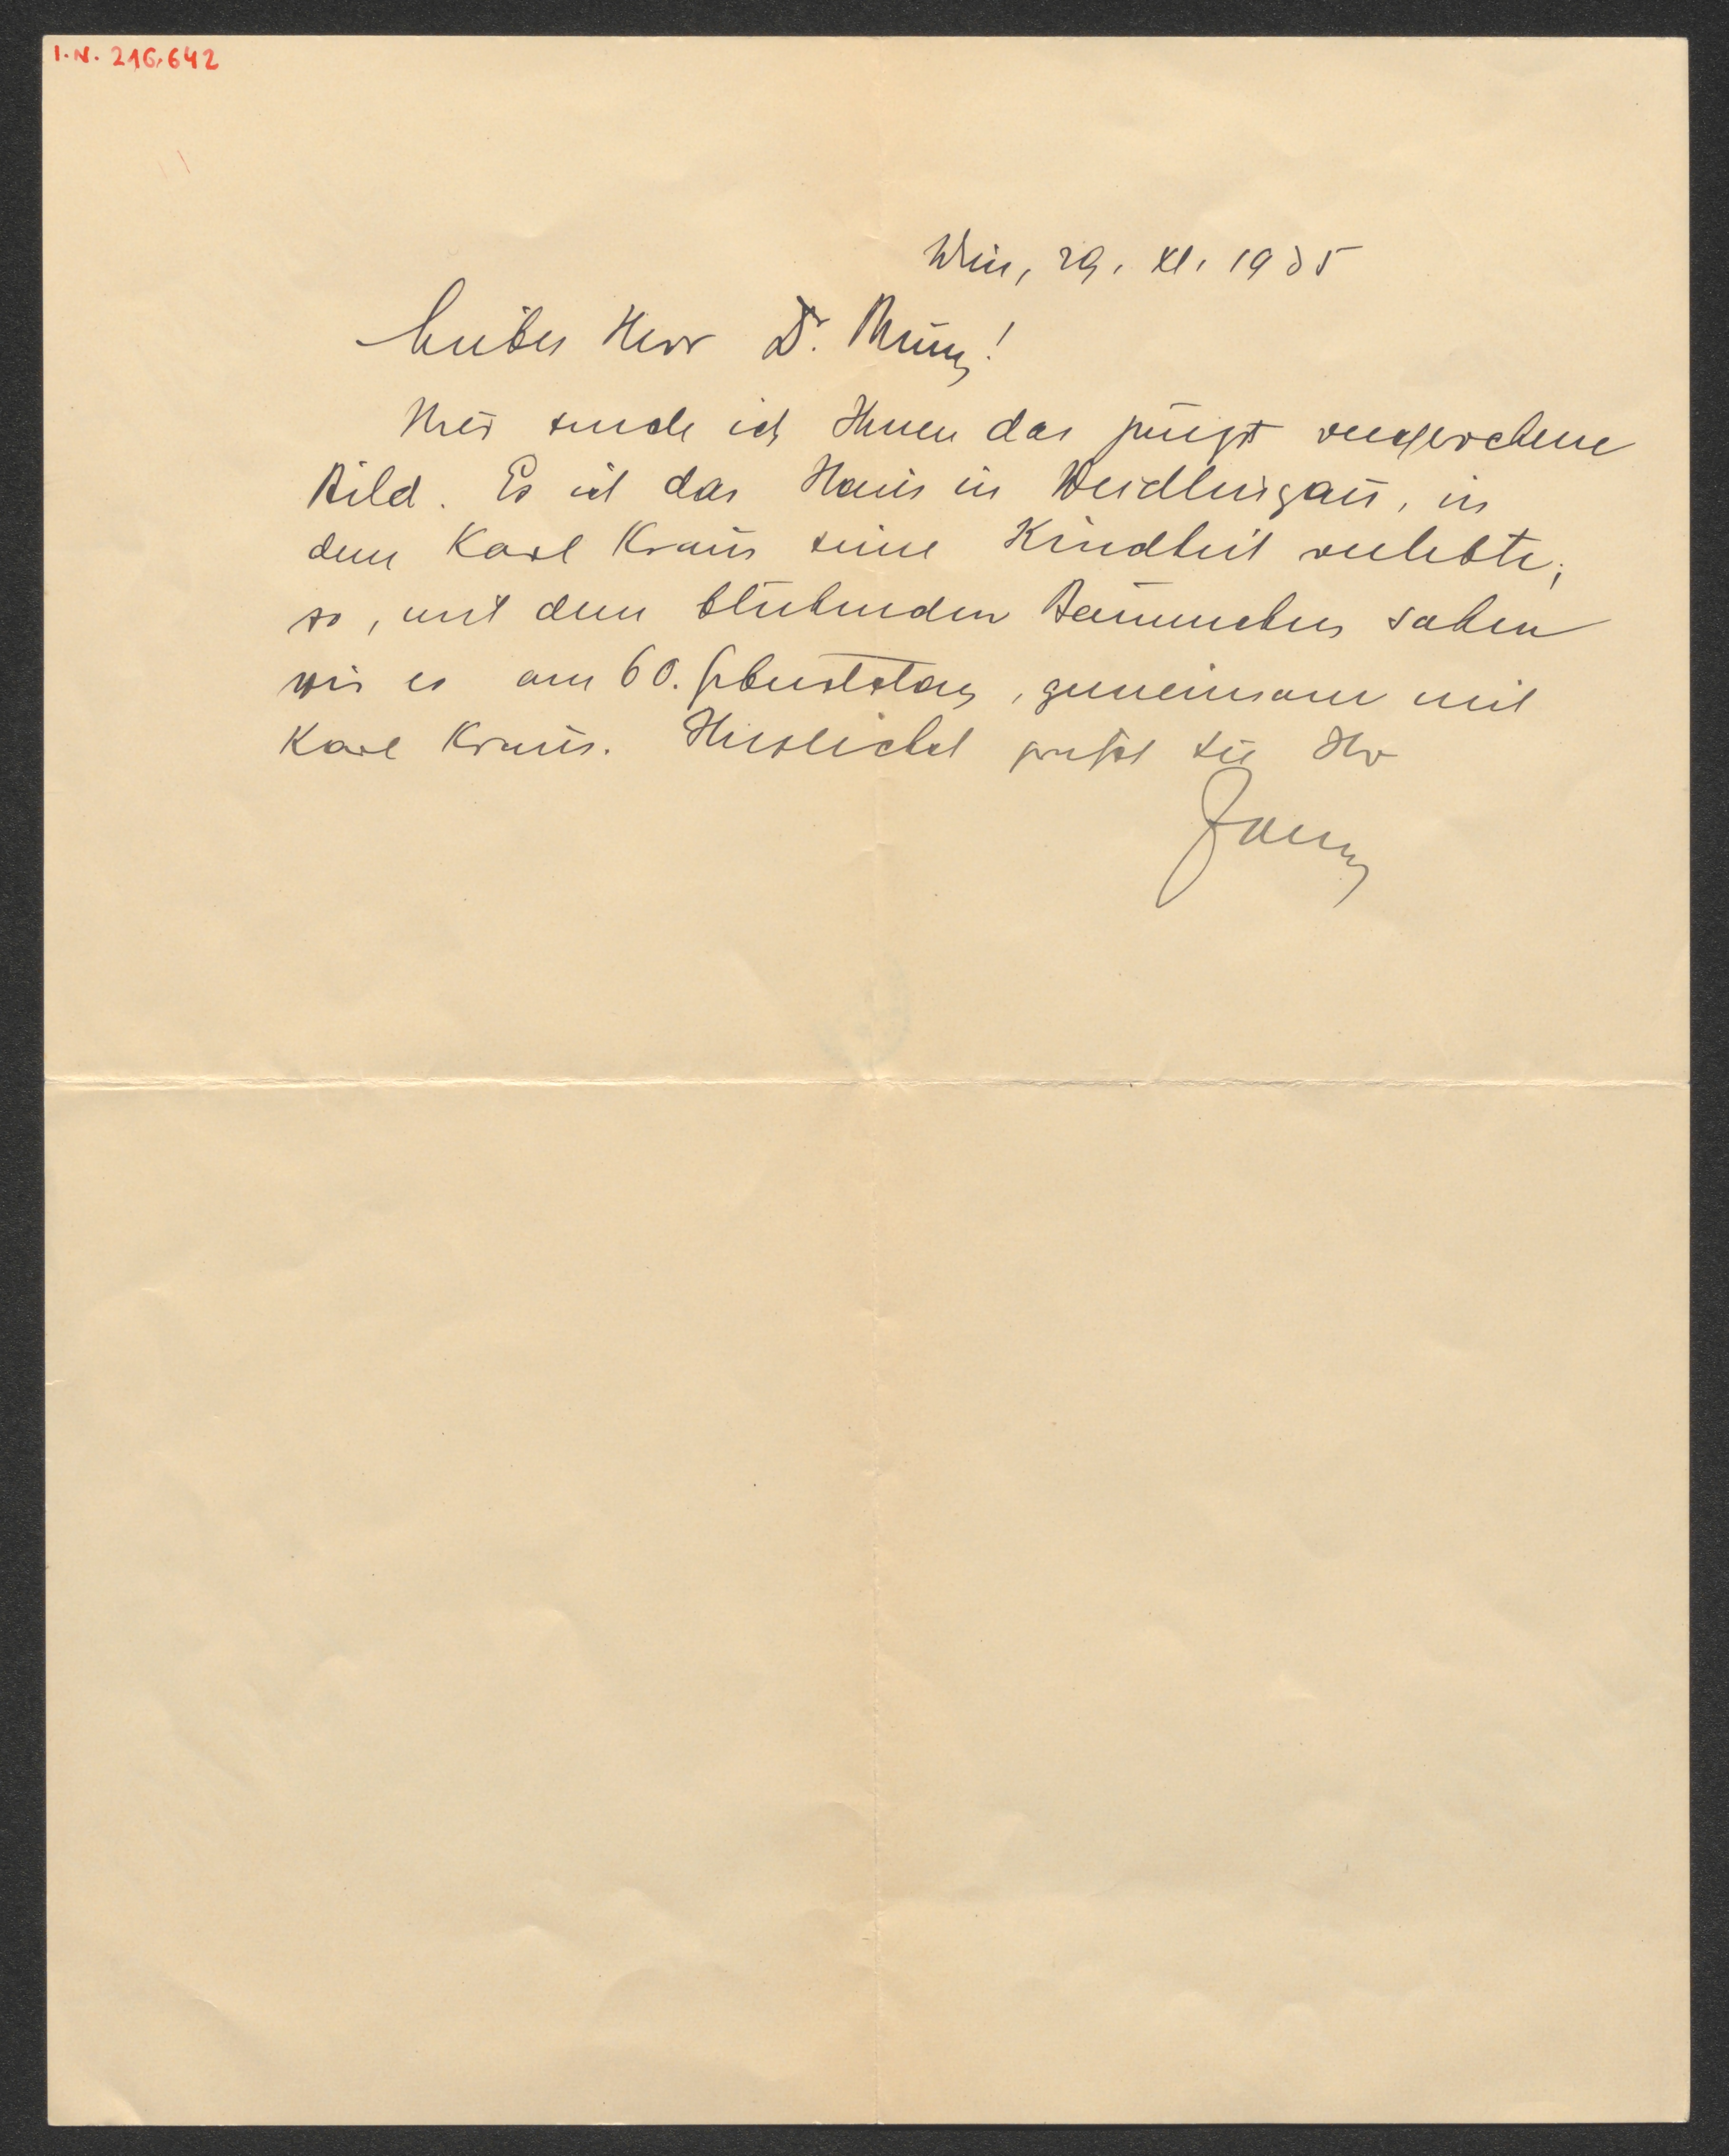 I.N. 216.642
Wien, 29. XI. 1935
Lieber Herr Dr. Münz!
Hier sende ich Ihnen das jüngst versprochene
Bild. Es ist das Haus in Weidlingau, in
dem Karl Kraus seine Kindheit verlebte;
so, mit dem blühenden Bäumchen sahen
wir es am 60. Geburtstag, gemeinsam mit
Karl Kraus. Herzlichst grüßt Sie Ihr